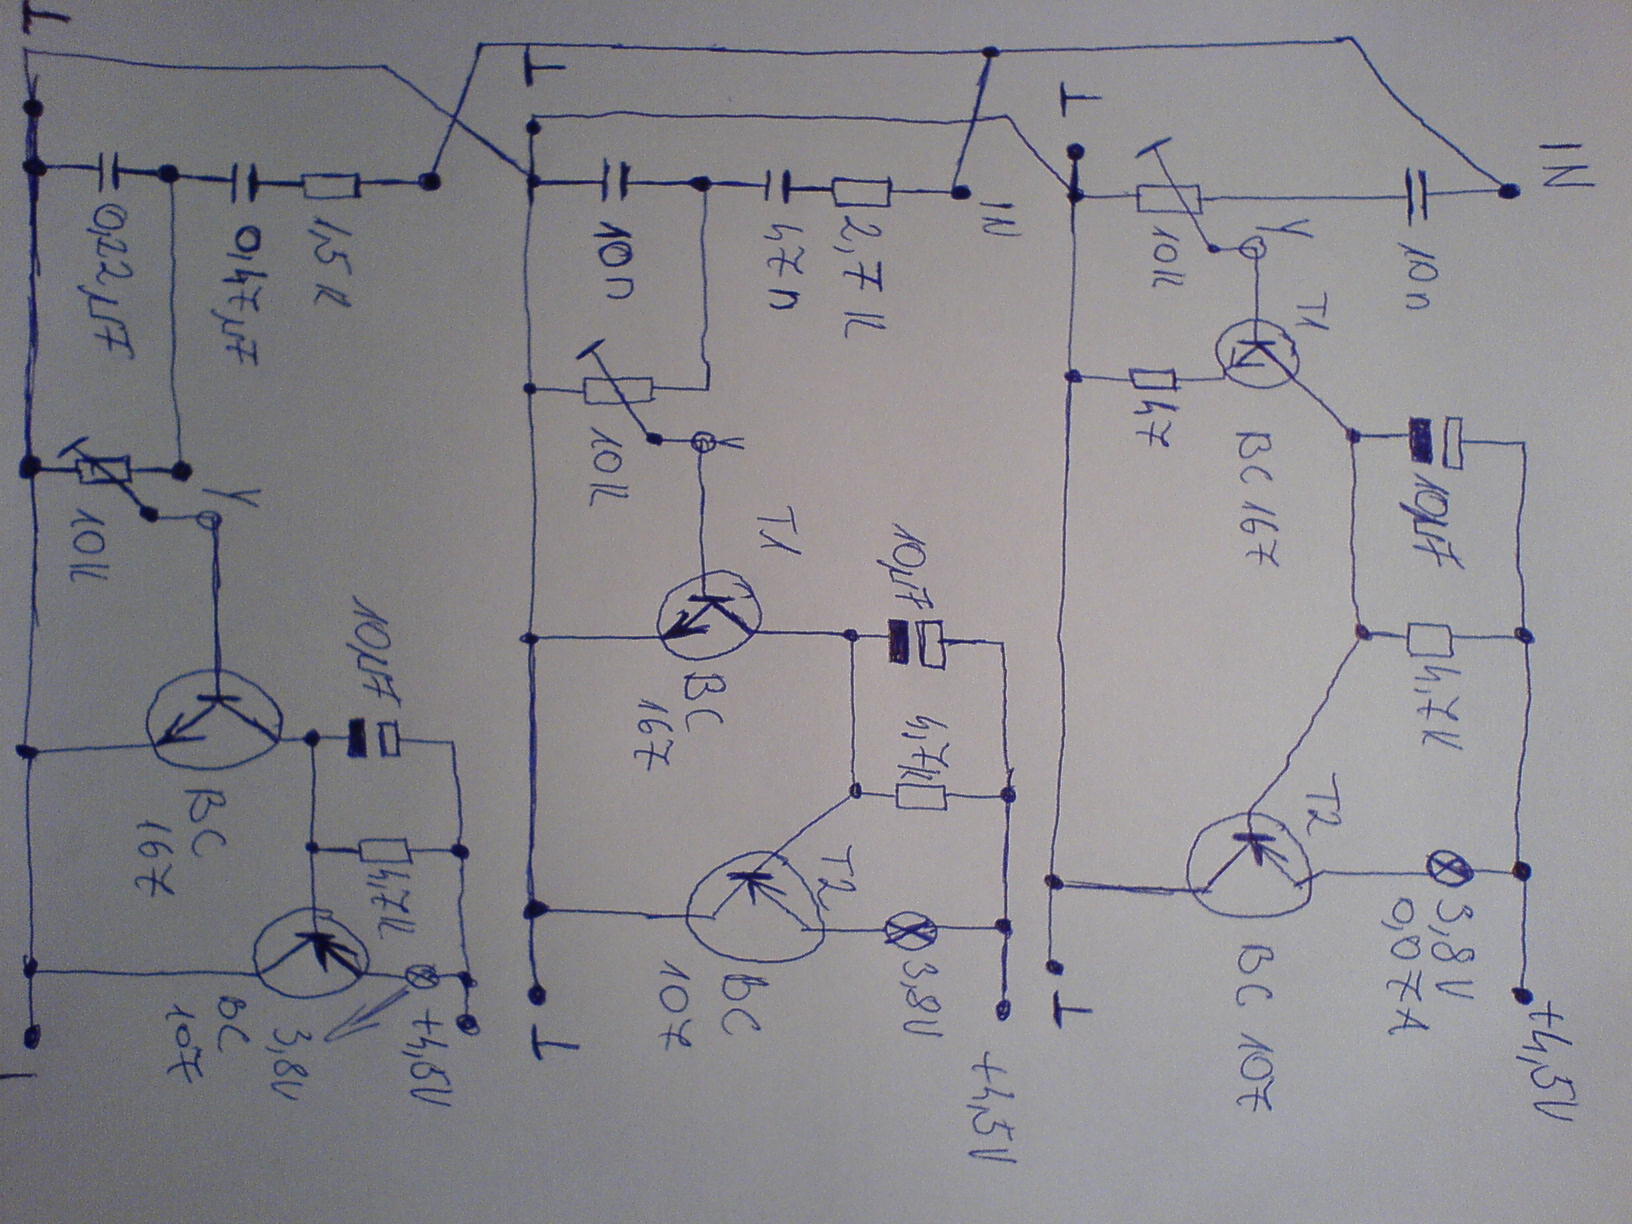 IN
T
10n
10k
Y
T1
BC 167
47
10µF
4,7k
T2
BC 107
3,8V
0,07A
+4,5V
T
T
IN
2,7k
47n
10n
10k
Y
T1
BC
167
10µF
4,7k
T2
BC
107
3,8V
+4,5V
T
T
1,5k
0,47µF
0,22µF
10k
Y
BC
167
10µF
4,7k
BC
107
3,8V
+4,5V